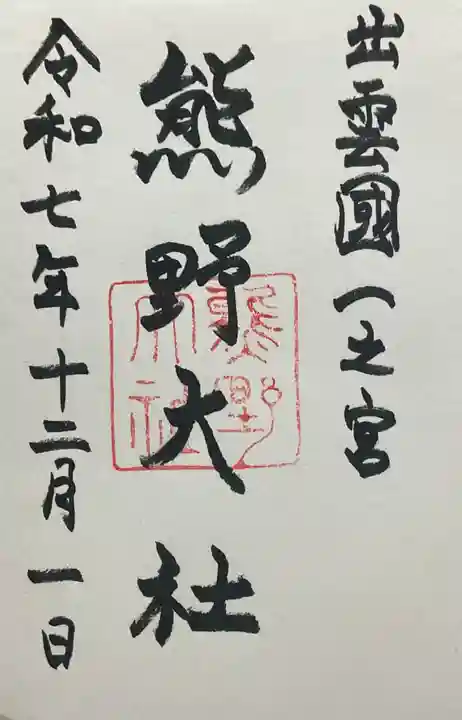 出雲國一之宮
熊野大社
熊野
大社
令和七年十二月一日